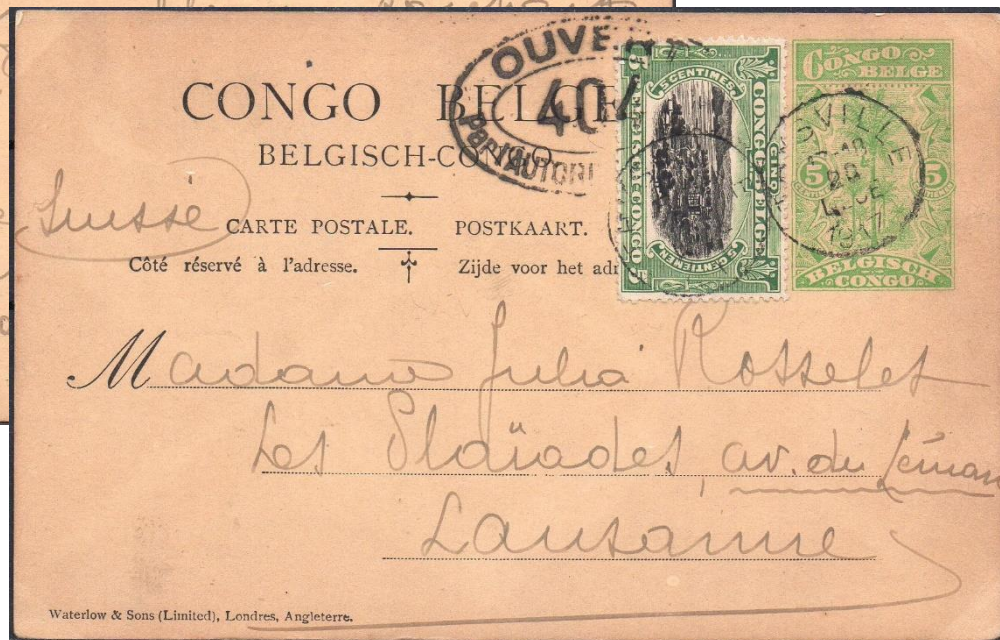 OUVE
401
Par AUTORI
CONGO BELGE
BELGISCH-CONGO
CARTE POSTALE. POSTKAART.
Côté réservé à l'adresse. Zijde voor het adr
Suisse
5 CENTIMES
CONGO BELGE
BELGISCH CONGO
5 CENTIEMEN
CONGO BELGE
5 5
BELGISCH CONGO
1917
Madame Julia Rosselet
Les Plaïades, av. du Léman
Lausanne
Waterlow & Sons (Limited), Londres, Angleterre.